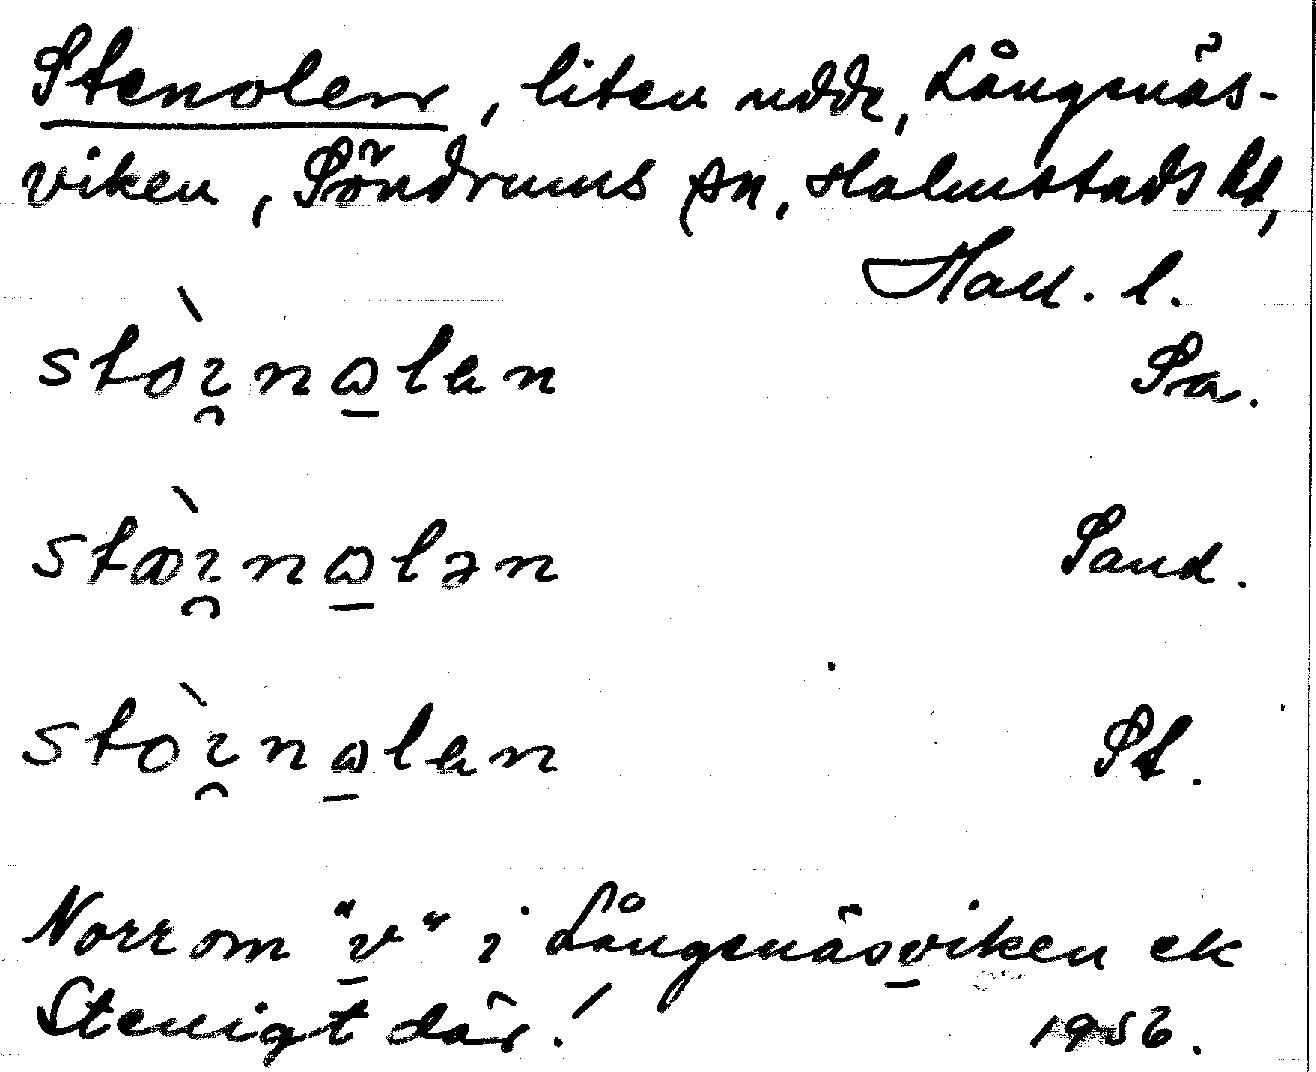 Stenolen, liten udde, Långenäs-
viken, Söndrums sn, Halmstads hd,
Hall. l.
stòı̯nɷ̱len Sa.
stæ̀ı̯nɷ̱lən Sand.
stòı̯nɷ̱len St.
Norr om "v" i Långenäsviken ek
Stenigt där! 1956.